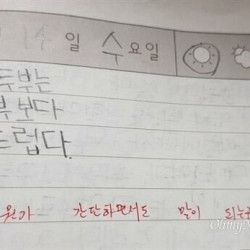 일 수요일
두부는
부보다
드럽다.
원가 간단하면서도 말이 되는